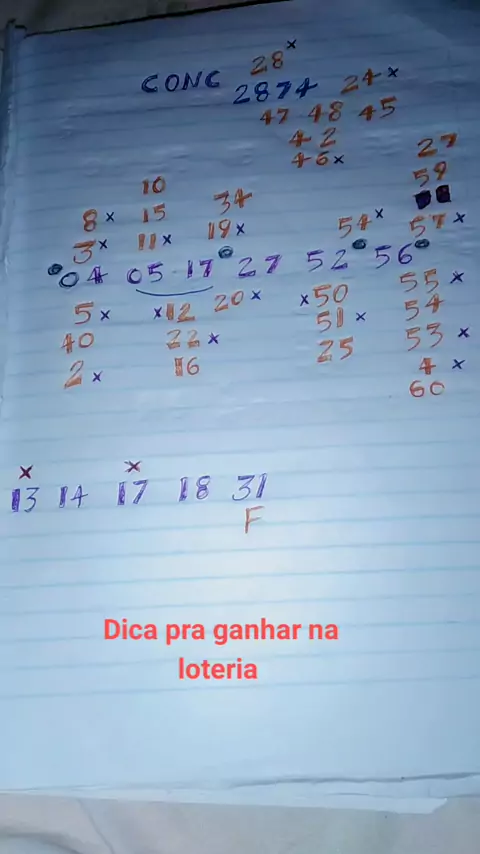 28 x
CONC 2874 24 x
47 48 45
42
46 x
27
10 59
8 x 15 34 54 x 57 x
3 x 11 x 19 x
04 05 17 27 52 56
5 x x 12 20 x x 50 55 x
40 22 x 51 x 54
2 x 16 25 53 x
4 x
60
x x
13 14 17 18 31
F
Dica pra ganhar na
loteria